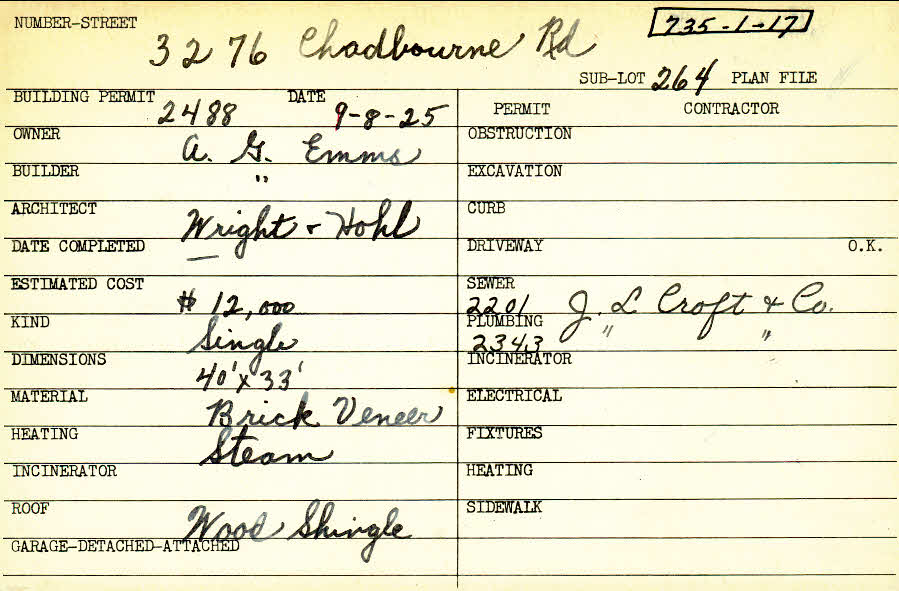 NUMBER-STREET
3276 Chadbourne Rd
735-1-17
SUB-LOT 264 PLAN FILE
BUILDING PERMIT 2488 DATE 9-8-25
OWNER A. G. Emms
BUILDER "
ARCHITECT Wright & Hohl
DATE COMPLETED —
ESTIMATED COST $12,000
KIND Single
DIMENSIONS 40' x 33'
MATERIAL Brick Veneer
HEATING Steam
INCINERATOR
ROOF Wood Shingle
GARAGE-DETACHED-ATTACHED
PERMIT CONTRACTOR
OBSTRUCTION
EXCAVATION
CURB
DRIVEWAY O.K.
SEWER 2201 J. L Croft & Co.
PLUMBING 2343 " "
INCINERATOR
ELECTRICAL
FIXTURES
HEATING
SIDEWALK